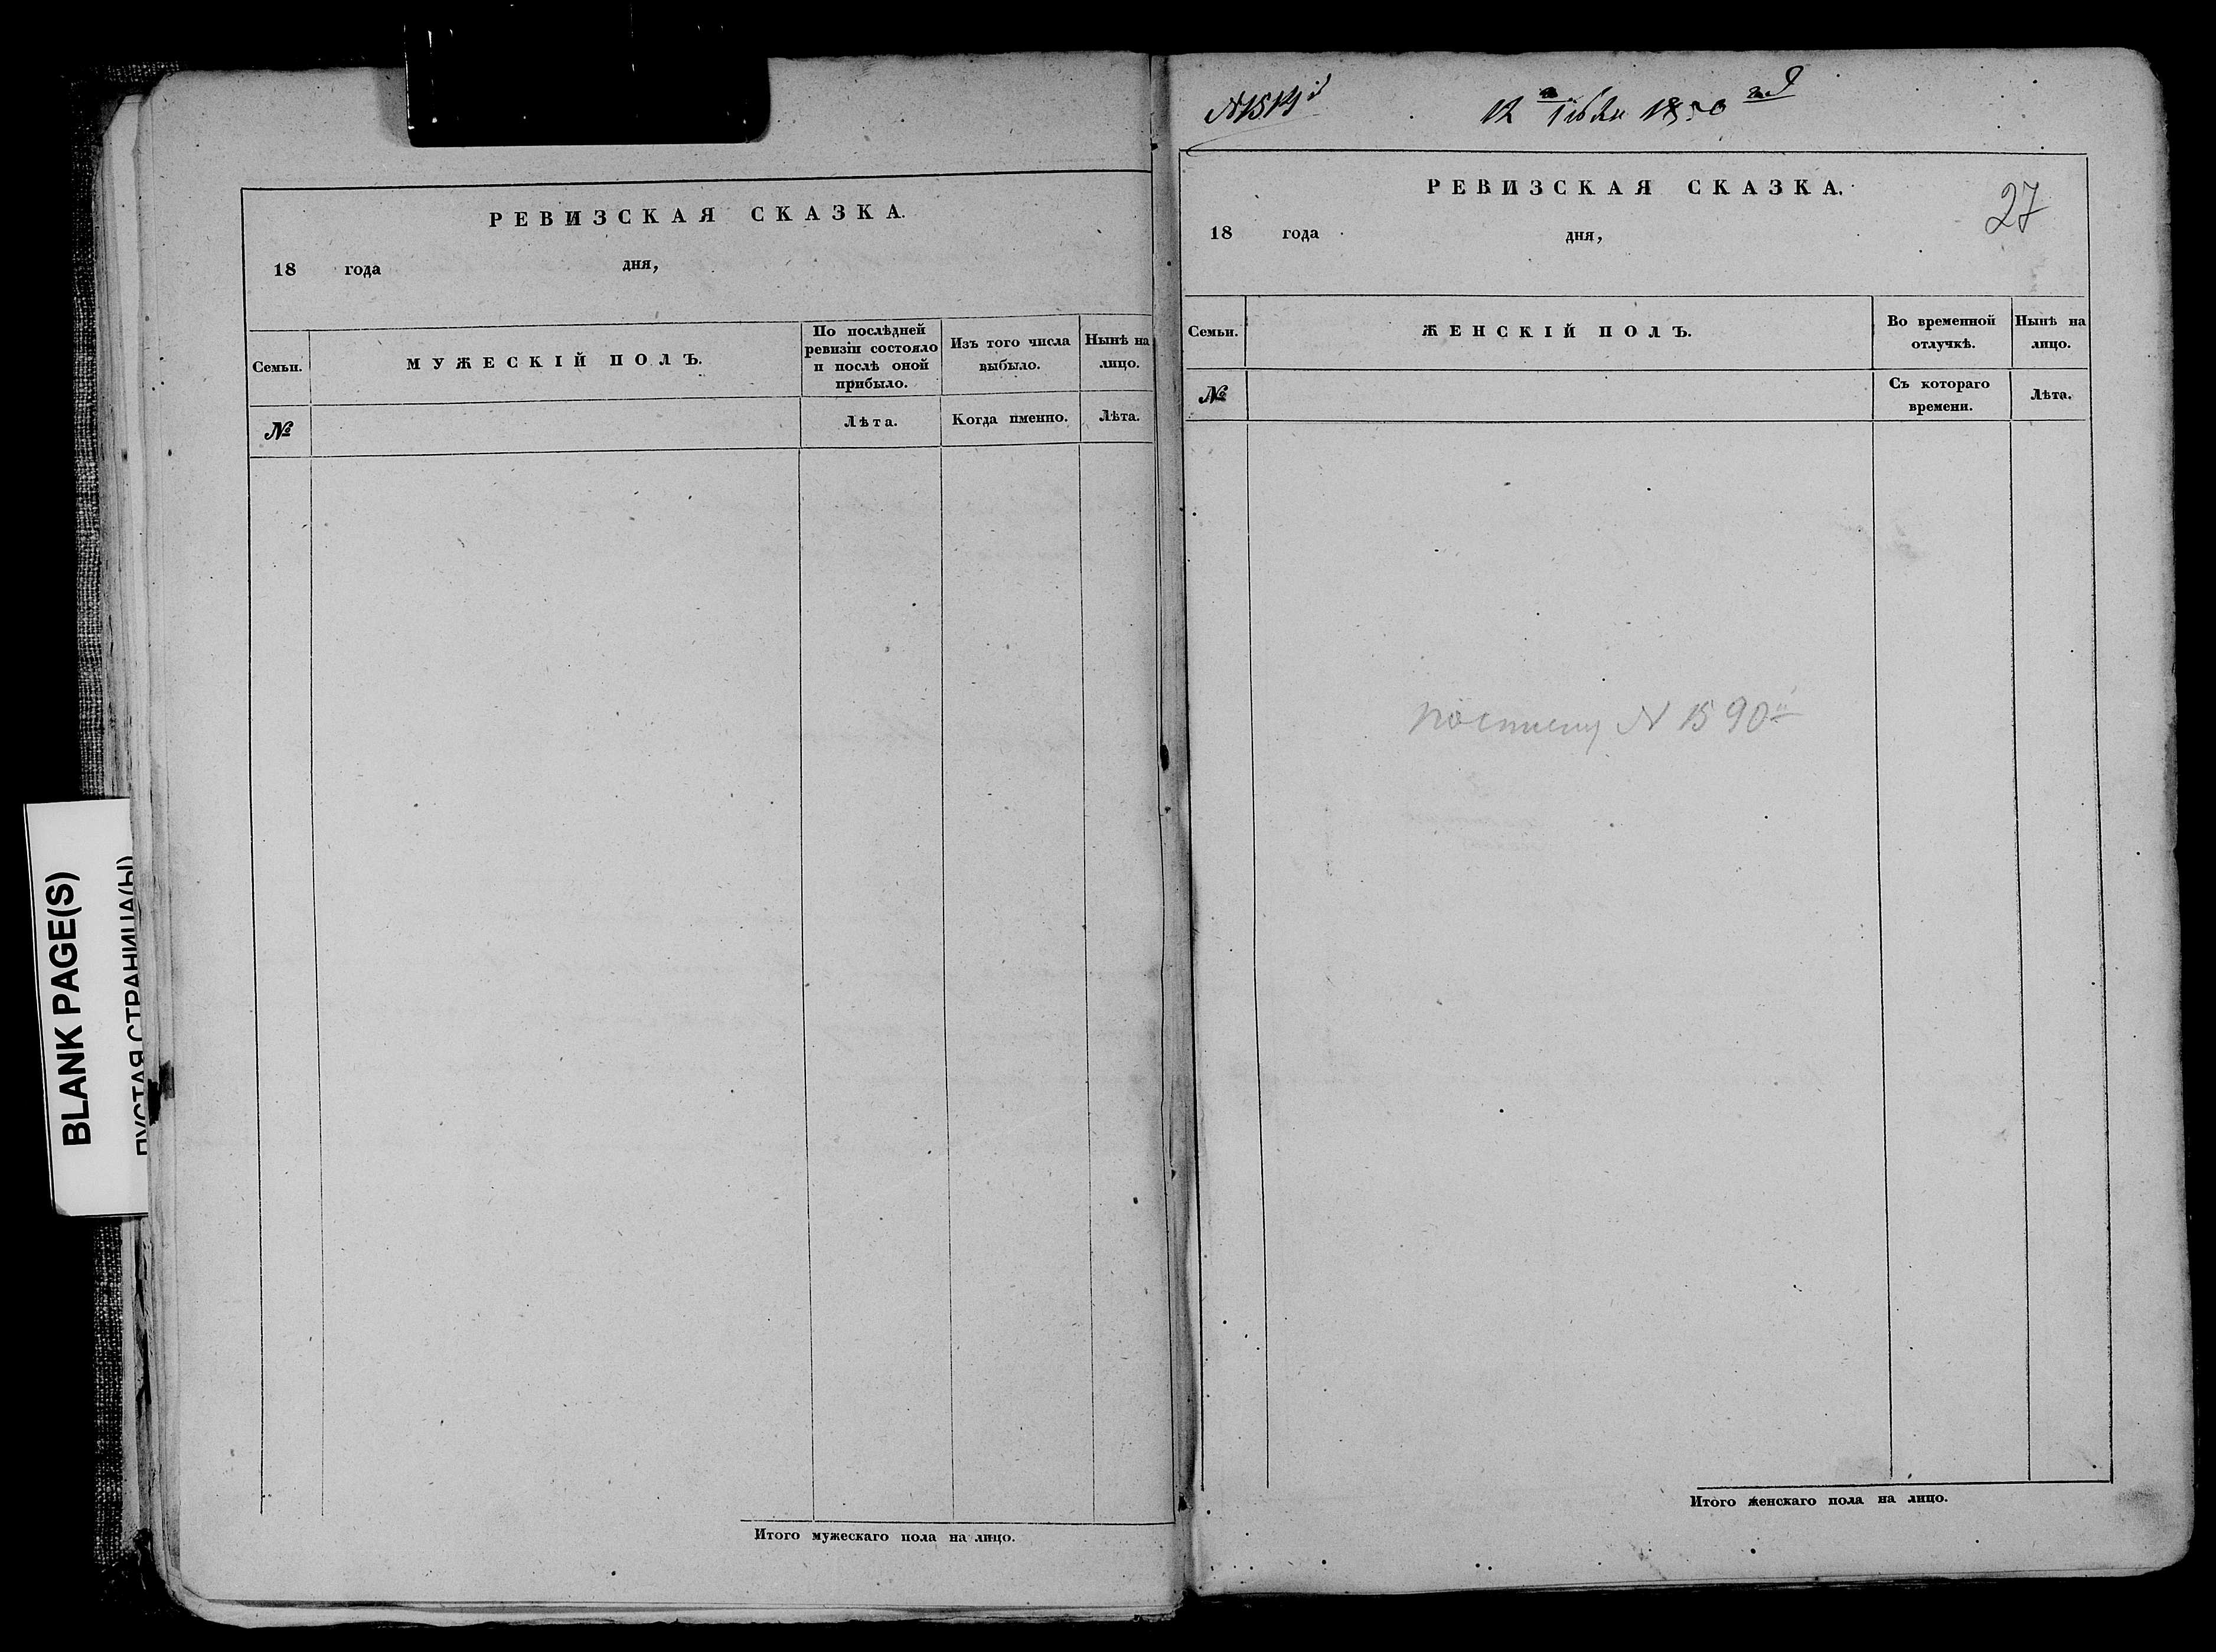 BLANK PAGE(S)
ПУСТАЯ СТРАНИЦА(Ы)
РЕВИЗСКАЯ СКАЗКА.
18 года дня,
Семьи.
МУЖЕСКІЙ ПОЛЪ.
По послѣдней
ревизіи состояло
и послѣ оной
прибыло.
Изъ того числа
выбыло.
Нынѣ на
лицо.
№
Лѣта.
Когда именно.
Лѣта.
Итого мужескаго пола на лицо.
12 1850
РЕВИЗСКАЯ СКАЗКА.
27
18 года дня,
Семьи.
ЖЕНСКІЙ ПОЛЪ.
Во временной
отлучкѣ.
Нынѣ на
лицо.
№
Съ котораго
времени.
Лѣта.
N 1590
Итого женскаго пола на лицо.